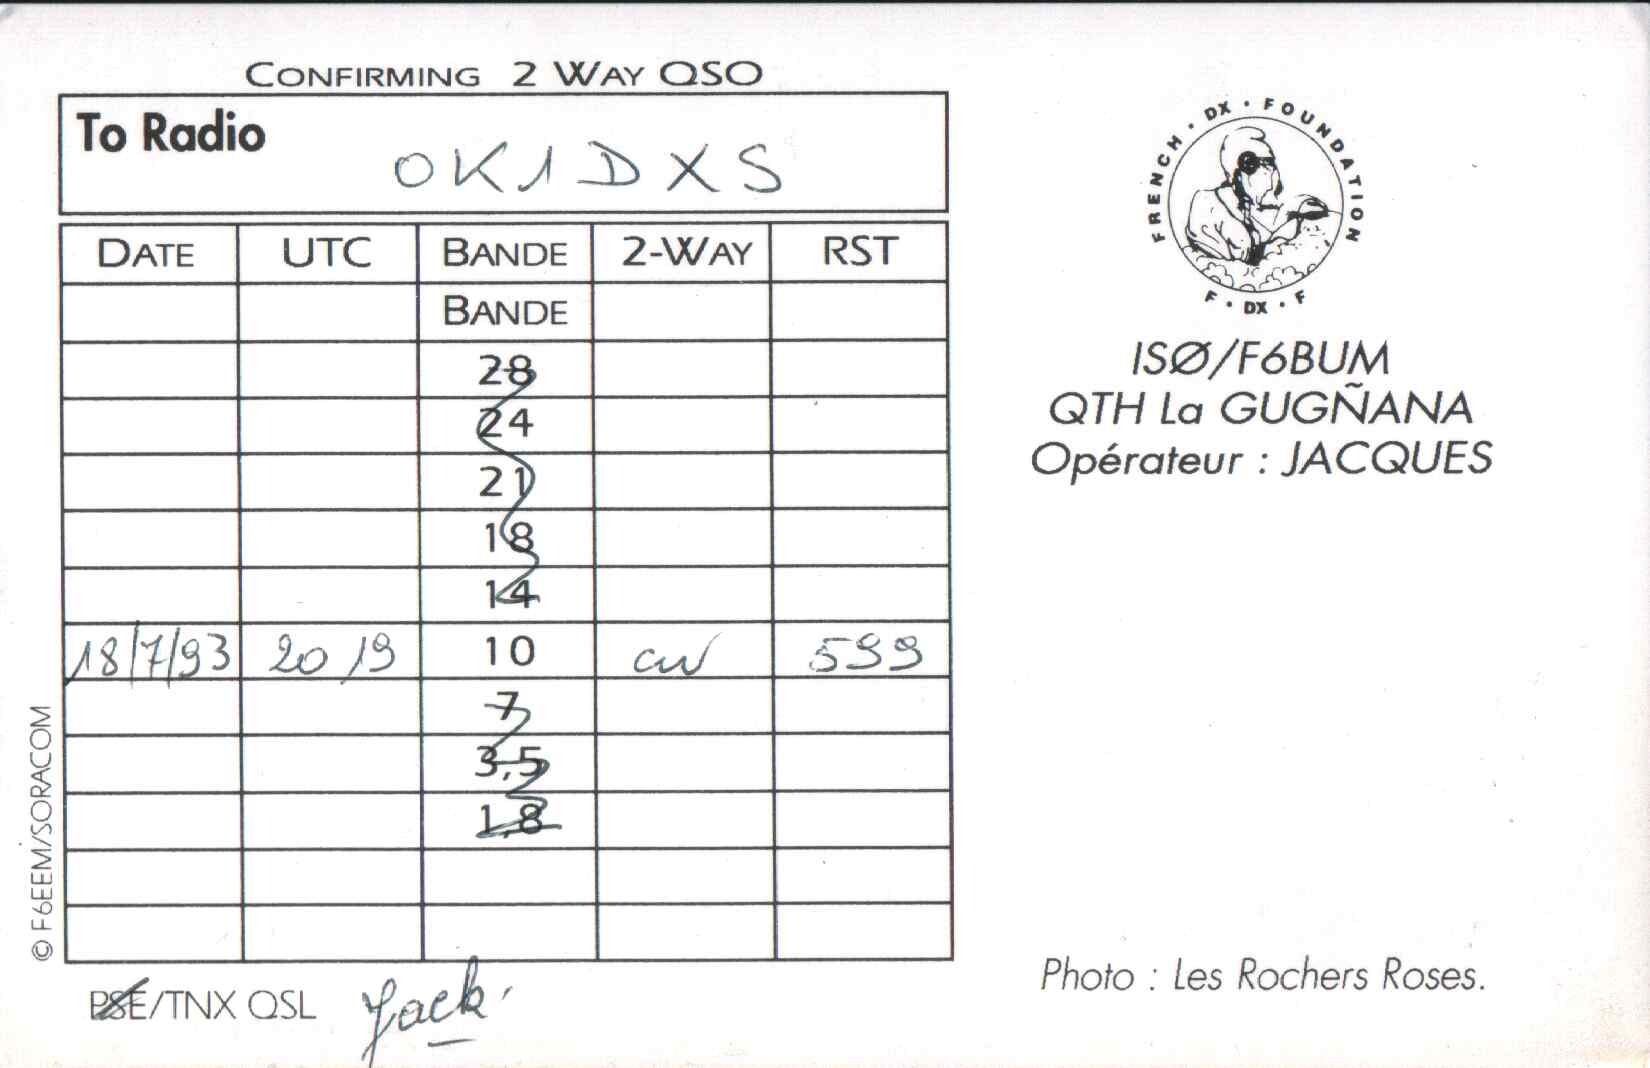 CONFIRMING 2 WAY QSO
To Radio OK1DXS
DATE UTC BANDE 2-WAY RST
BANDE
28
24
21
18
14
18/7/93 20 19 10 CW 599
7
3,5
1,8
PSE/TNX QSL Jack
© F6EEM/SORACOM
FRENCH · DX · FOUNDATION
F · DX · F
ISØ/F6BUM
QTH La GUGÑANA
Opérateur : JACQUES
Photo : Les Rochers Roses.